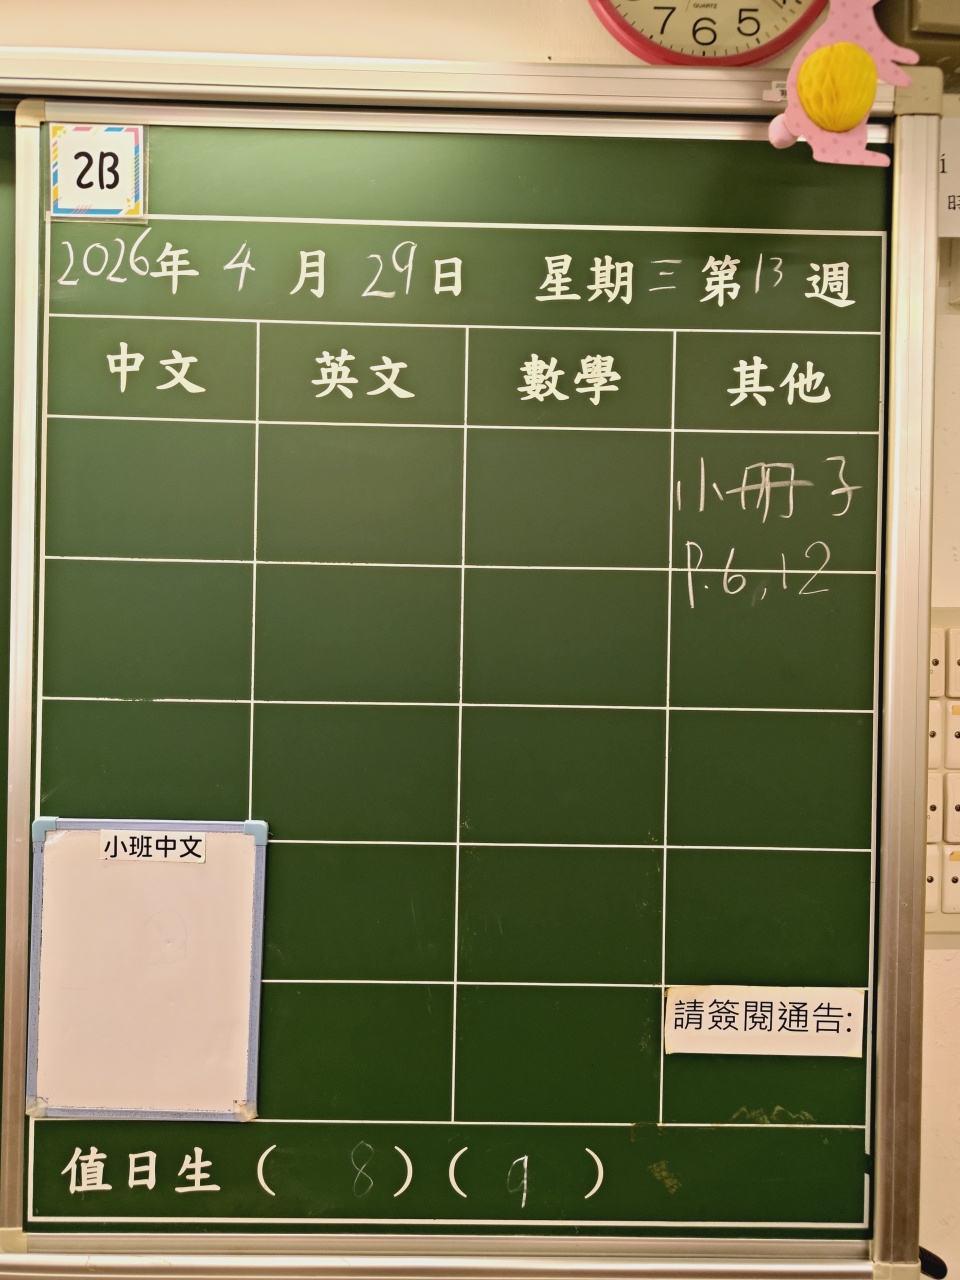 QUARTZ
7 6 5
2B
2026年 4 月 29 日 星期三 第13週
中文 英文 數學 其他
小冊子
P.6,12
小班中文
請簽閱通告:
值日生 ( 8 ) ( 9 )